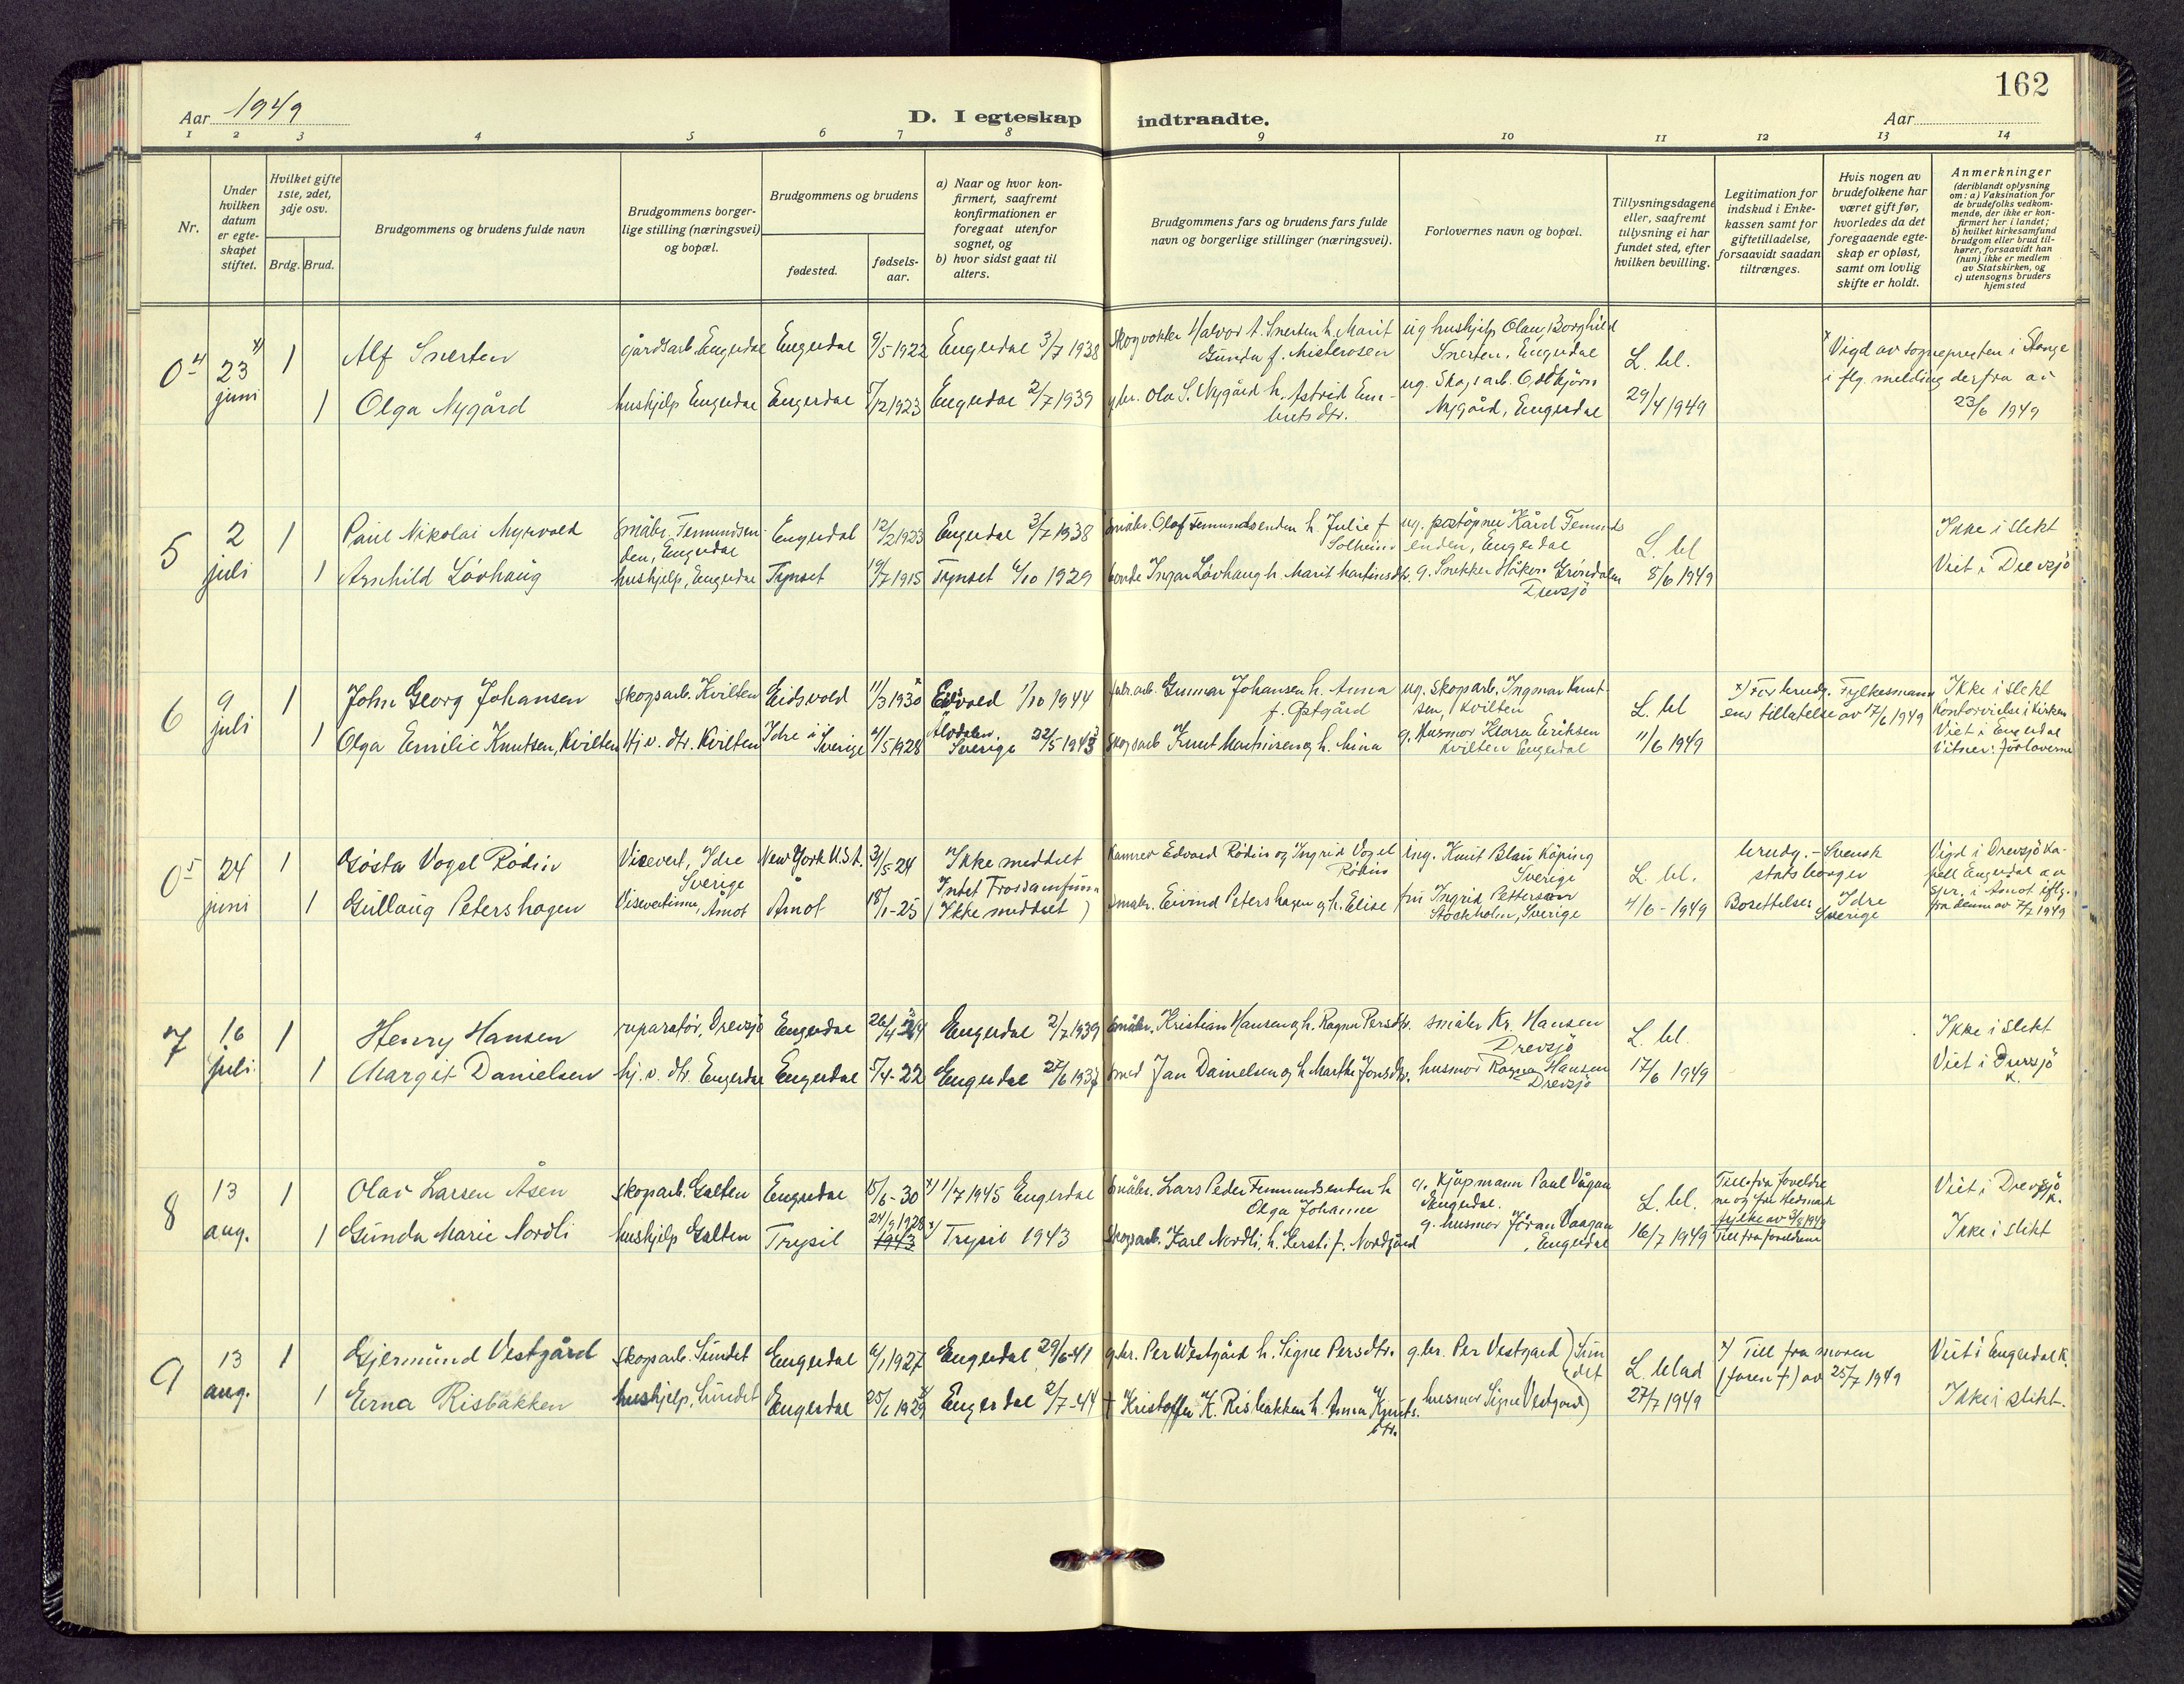 162
Aar 1949
D. I egteskap indtraadte.
Aar
1 2 3 4 5 6 7 8 9 10 11 12 13 14
Nr.
Under hvilken datum er egteskapet stiftet.
Hvilket gifte 1ste, 2det, 3dje osv.
Brdg. Brud.
Brudgommens og brudens fulde navn
Brudgommens borgerlige stilling (næringsvei) og bopæl.
Brudgommens og brudens
fødested.
fødselsaar.
a) Naar og hvor konfirmert, saafremt konfirmationen er foregaat utenfor sognet, og
b) hvor sidst gaat til alters.
Brudgommens fars og brudens fars fulde navn og borgerlige stillinger (næringsvei).
Forlovernes navn og bopæl.
Tillysningsdagene eller, saafremt tillysning ei har fundet sted, efter hvilken bevilling.
Legitimation for indskud i Enkekassen samt for giftetilladelse, forsaavidt saadan tiltrænges.
Hvis nogen av brudefolkene har været gift før, hvorledes da det foregaaende egteskap er opløst, samt om lovlig skifte er holdt.
Anmerkninger (deriblandt oplysning om: a) Vaksination for de brudefolks vedkommende, der ikke er konfirmert her i landet; b) hvilket kirkesamfund brudgom eller brud tilhører, forsaavidt han (hun) ikke er medlem av Statskirken, og c) utensogns bruders hjemsted
0 4 23 x) juni 1 Alf Snerten gårdsarb. Engerdal Engerdal 9/5 1922 Engerdal 3/7 1938 Skogvokter Halvor t. Snerten h. Marit Gunda f. Misterosen ug hushjelp Olau Borghild Snerten, Engerdal L. bl. x Vigd av sognepresten i Stange
1 Olga Nygård hushjelp Engerdal Engerdal 5/12 1923 Engerdal 2/7 1939 gbr. Ola S. Nygård h. Astrid Embretsdtr. ug. Skogsarb. Oddbjörn Nygård, Engerdal 29/4 1949 i flg. melding derfra av 23/6 1949
5 2 juli 1 Paul Nikolai Myrvold Småbr. Femundsenden, Engerdal Engerdal 12/2 1923 Engerdal 3/7 1938 småbr. Olaf Femundsenden h. Julie f Solheim ug. postöpner Kård Femundsenden, Engerdal L. bl Ikke i slekt
1 Arnhild Lövhaug hushjelp, Engerdal Tynset 19/7 1915 Tynset 6/10 1929 bonde Ingar Lövhaug h. Marit Martinsdtr. g. Snekker Håkon Gröndalen Drevsjö 8/6 1949 Viet i Drevsjö
6 9 juli 1 John Georg Johansen skogsarb. Kvilten Eidsvold 11/3 1930 x Eidsvold 1/10 1944 fabr.arb. Gunnar Johansen h. Anna f. Østgård ug. skogsarb. Ingmar Knutsen, Kvilten L. bl x) For brudg. Fylkesmannens tillatelse av 17/6 1949 Ikke i slekt Kontorvielse i kirken
1 Olga Emilie Knutsen, Kvilten Hj.v. dtr. Kvilten Idre i Sverige 4/5 1928 Älvdalen, Sverige 22/5 1943 skogsarb Knut Martinsen og h. Mina g. Husmor Klara Eriksen Kvilten Engerdal 11/6 1949 Viet i Engerdal Vitner: forloverne
0 5 24 juni 1 Gösta Vogel Rödin Visevert, Idre Sverige New York U.S.A. 31/5-24 Ikke meddelt Intet Trossamfunn Kamrer Edvard Rödin og Ingrid Vogel Rödin ing. Knut Blau Köping Sverige L. bl. brudg. - Svensk statsborger Vigd i Drevsjö kapell Engerdal av
1 Gullaug Petershagen Visevertinne, Åmot Åmot 18/1-25 (Ikke meddelt) småbr. Eivind Petershagen og h. Elise fru Ingrid Petterson Stockholm, Sverige 4/6-1949 Bosettelse: Idre Sverige spr. i Åmot iflg. fra denne av 7/7 1949
7 16 juli 1 Henry Hansen reparatör, Drevsjö Engerdal 26/4-24 Engerdal 2/7 1939 småbr. Kristian Hansen og h. Ragna Persdtr. småbr Kr. Hansen Drevsjö L. bl. Ikke i slekt
1 Margit Danielsen hj.v. dtr. Engerdal Engerdal 5/4-22 Engerdal 27/6 1937 smed Jan Danielsen og h Marthe Jonsdtr. husmor Ragna Hansen Drevsjö 17/6 1949 Viet i Drevsjö k.
8 13 aug. 1 Olav Larsen Åsen skogsarb. Galten Engerdal 15/6-30 x) 1/7 1945 Engerdal småbr. Lars Peder Femundsenden h Olga Johanne g. kjøpmann Paul Vågan Engerdal. L. bl. Till. fra foreldrene og fra Hedmark fylke av 3/8 1949 Viet i Drevsjö k.
1 Gunda Marie Nordli hushjelp Galten Trysil 24/9 1928 1943 x) Trysil 1943 Skogsarb. Karl Nordli, h. Kersti f. Nordgård g. husmor Jöran Vaagan, Engerdal 16/7 1949 Till fra foreldrene Ikke i slekt
9 13 aug. 1 Gjermund Vestgård skogsarb. Sundet Engerdal 6/1 1927 Engerdal 29/6-41 g.br. Per Westgård h. Signe Persdtr. g.br. Per Vestgard ) Sundet L. blad x) Till fra moren (faren †) av 25/7 1949 Viet i Engerdal k.
1 Erna Risbakken hushjelp, Sundet Engerdal 25/6 1929 x Engerdal 2/7-44 † Kristoffer K. Risbakken h. Anna Knutsdtr. husmor Signe Vestgard) 27/7 1949 Ikke i slekt.